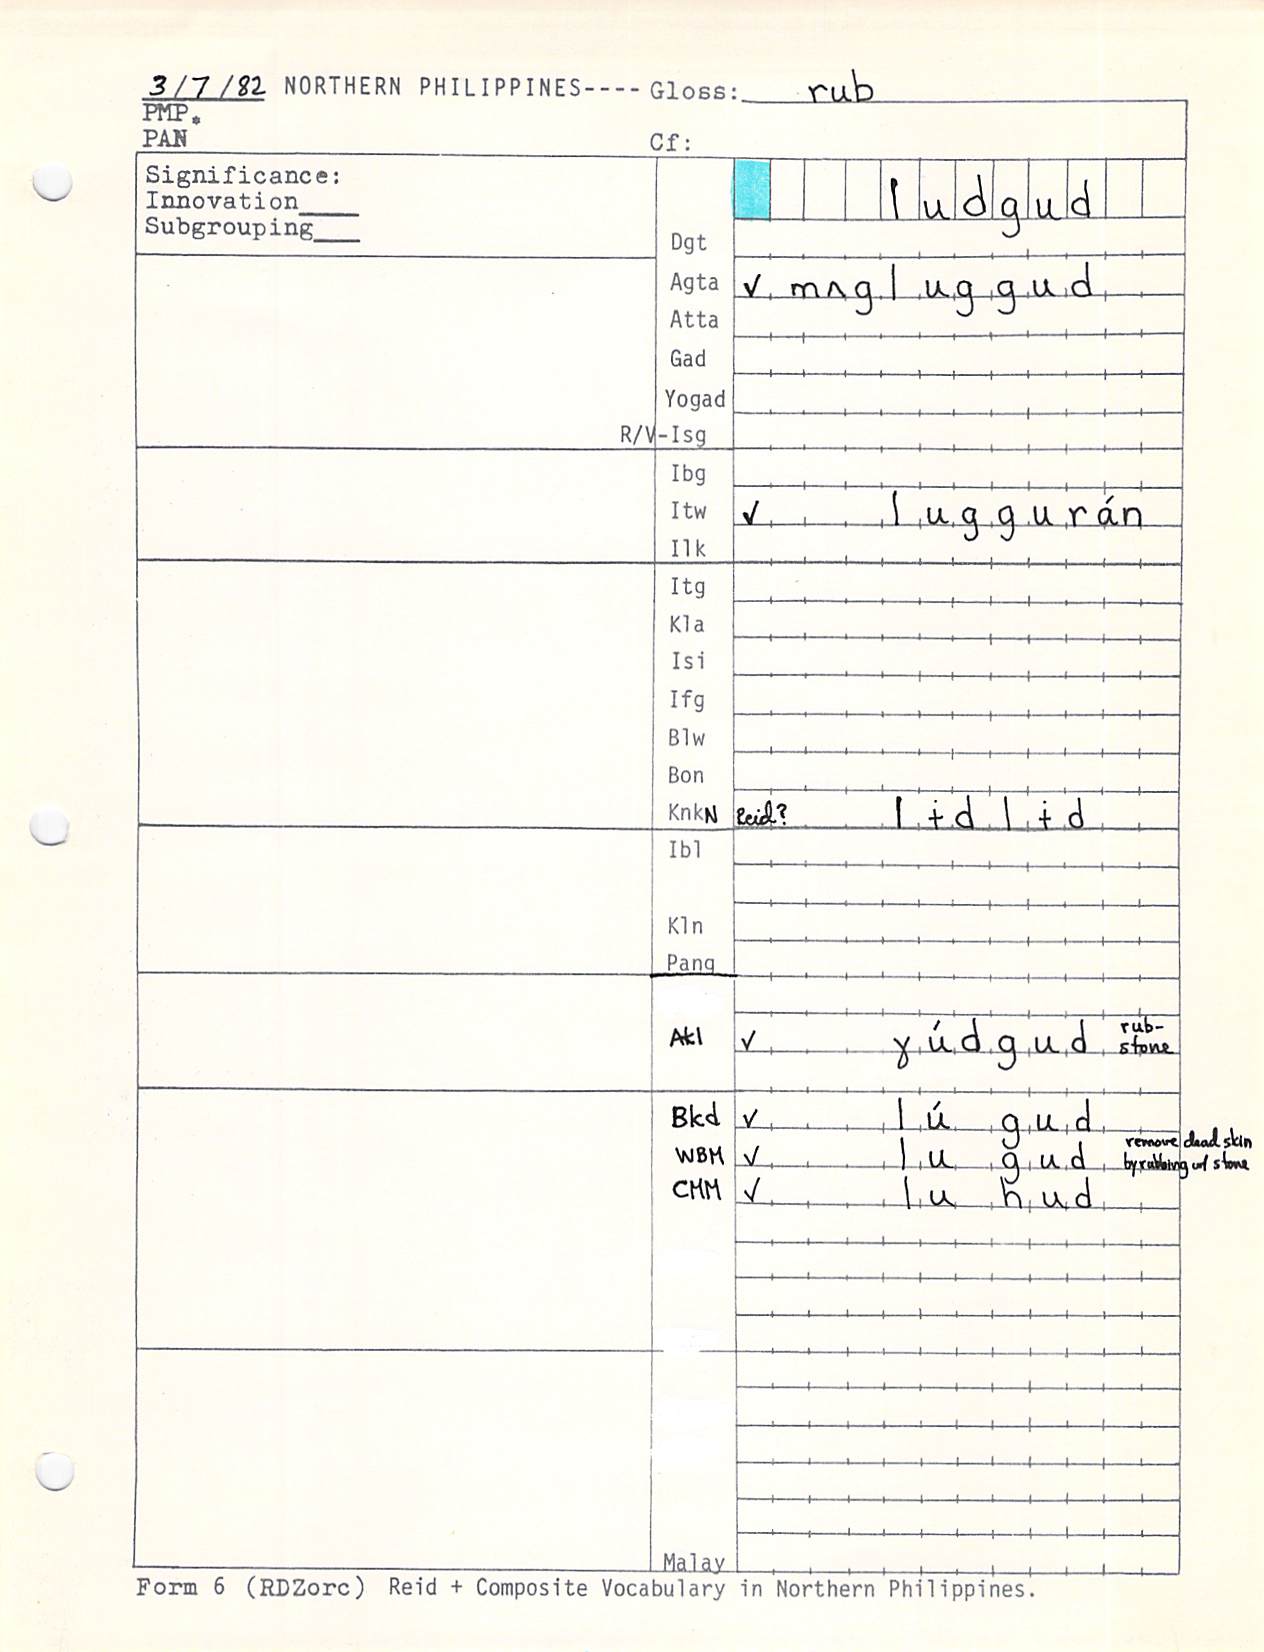 3/7/82 NORTHERN PHILIPPINES---- Gloss: rub
PMP.
PAN Cf:
Significance:
Innovation____
Subgrouping___
ludgud
Dgt
Agta ✓ mʌgluggud
Atta
Gad
Yogad
R/V-Isg
Ibg
Itw ✓ luggurán
Ilk
Itg
Kla
Isi
Ifg
Blw
Bon
KnkN Reid? lɨdlɨd
Ibl
Kln
Pang
Akl ✓ ɣúdgud rub-
stone
Bkd ✓ lúgud
WBM ✓ lugud remove dead skin
by rubbing w/ stone
CMM ✓ luhud
Malay
Form 6 (RDZorc) Reid + Composite Vocabulary in Northern Philippines.